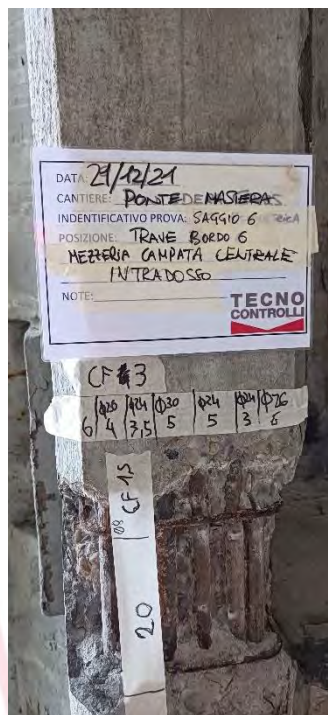 DATA: 29/12/21
CANTIERE: PONTE DE MASTERA
INDENTIFICATIVO PROVA: SAGGIO 6
POSIZIONE: TRAVE BORDO 6
MEZZERIA CAMPATA CENTRALE
INTRADOSSO
NOTE:
TECNO
CONTROLLI
CF 3
Φ26 Φ24 Φ30 Φ24 Φ24 Φ26
6 4 3,5 5 5 3 6
Φ8 CF 15
20